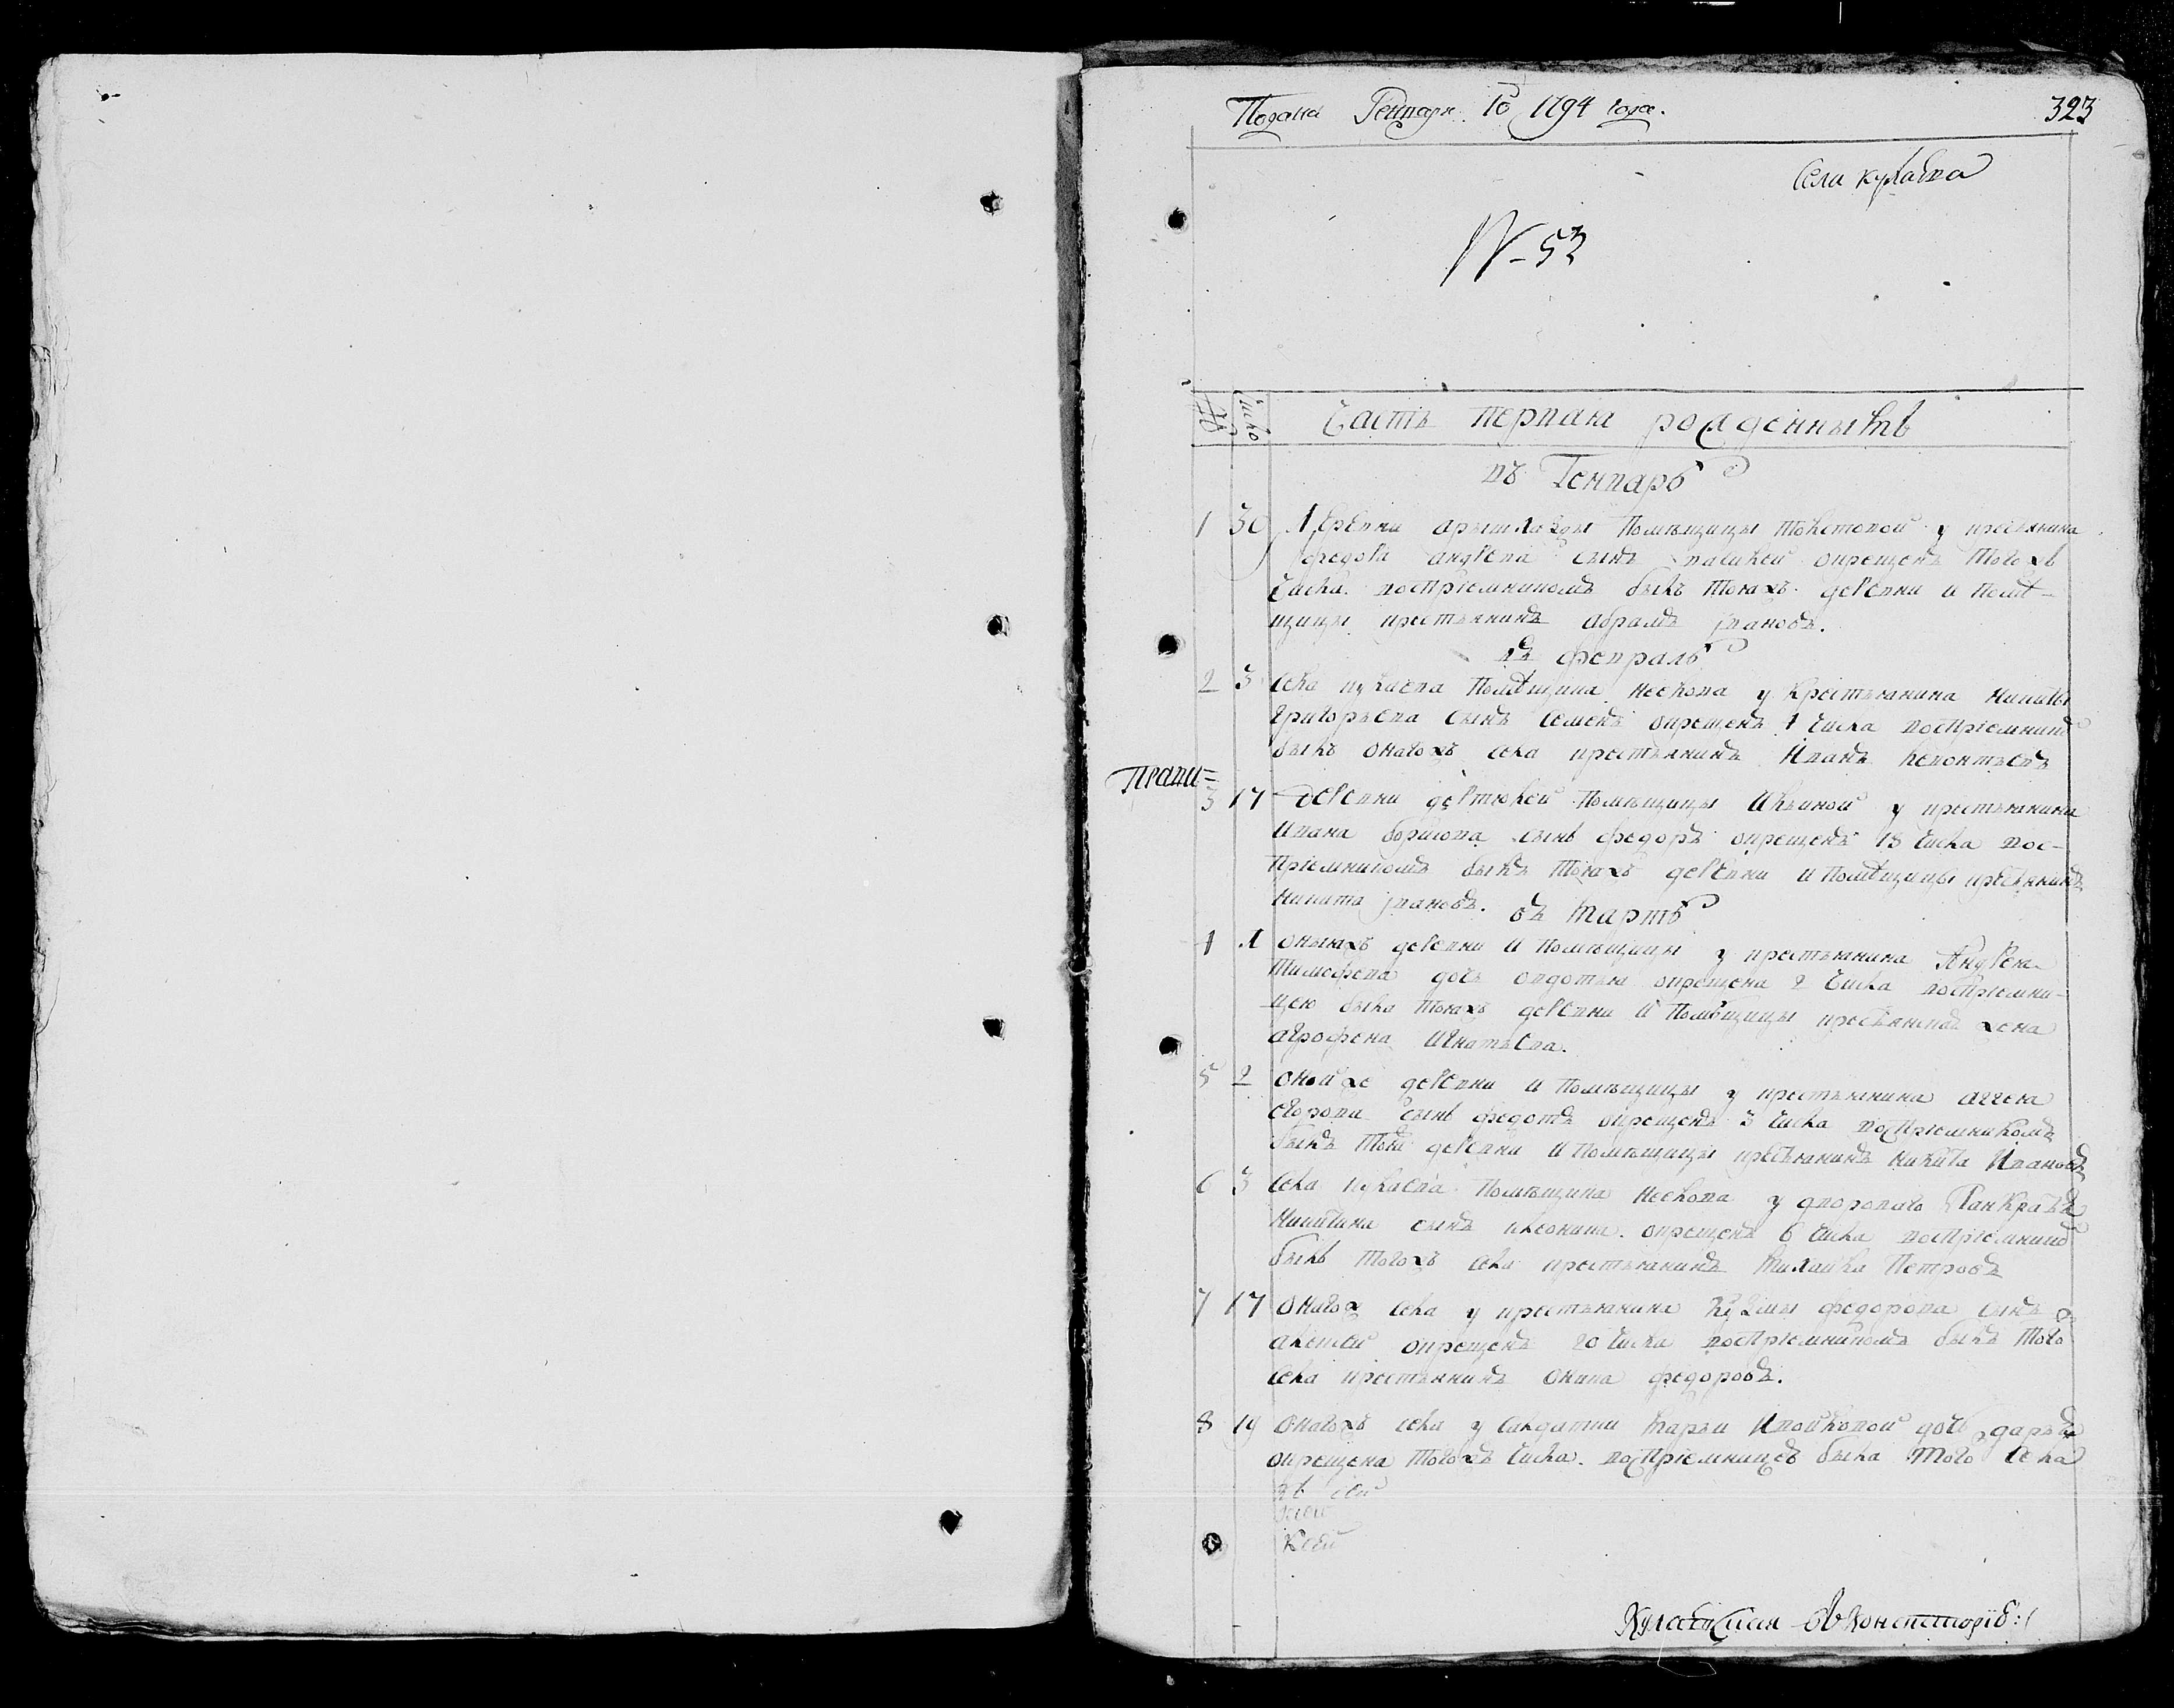 Подана Генваря 10 1794 года.
323
Села кулаева
№ 53
№ Число Часть первая рожденныхъ
въ Генварѣ
1 30 Деревни арышхазды помѣщицы толстовой у крестьянина
федора андреева сынъ василей крещенъ тогожъ
числа. воспріемникомъ былъ тояжъ деревни и помѣ-
щицы крестьянинъ абрамъ ивановъ.
въ февралѣ
2 3 села кулаева помѣщика неелова у крестьянина никиты
григорьева сынъ семенъ крещенъ 4 числа воспріемникъ
былъ онагожъ села крестьянинъ Иванъ леонтьевъ
Прави=
3 17 деревни дертюлей помѣщицы ильиной у крестьянина
ивана борисова сынъ федоръ крещенъ 18 числа вос-
пріемникомъ былъ тояжъ деревни и помѣщицы крестьянинъ
никита ивановъ. въ мартѣ
4 1 оныяжъ деревни и помѣщицы у крестьянина Андрея
тимофева дочь овдотья крещена 2 числа воспріемни-
цею была тояжъ деревни и помѣщицы крестьянская жена
агрофена игнатьева.
5 2 оной же деревни и помѣщицы у крестьянина аггея
егорова сынъ федотъ крещенъ 3 числа воспріемникомъ
былъ той деревни и помѣщицы крестьянинъ никита Ивановъ
6 3 села кулаева помѣщика неелова у двороваго Панкратья
никитина сынъ леонидъ крещенъ 6 числа воспріемникъ
былъ тогожъ села крестьянинъ михайла Петровъ
7 17 онагож села у крестьянина Кузмы федорова сынъ
алексей крещенъ 20 числа воспріемникомъ былъ того
села крестьянинъ федоровъ.
8 19 онагожъ села у салдатки марьи дочь дарья
крещена тогожъ числа. воспріемницею была того села
Кулаевская въ Консисторію: